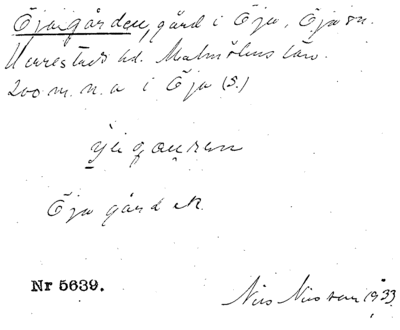 Öjagården, gård i Öja, Öja sn.
Herrestads hd. Malmöhus län.
200 m. n. o i Öja (S.)
Öja gården.
Nr 5639.
Nils Nilsson 1933.